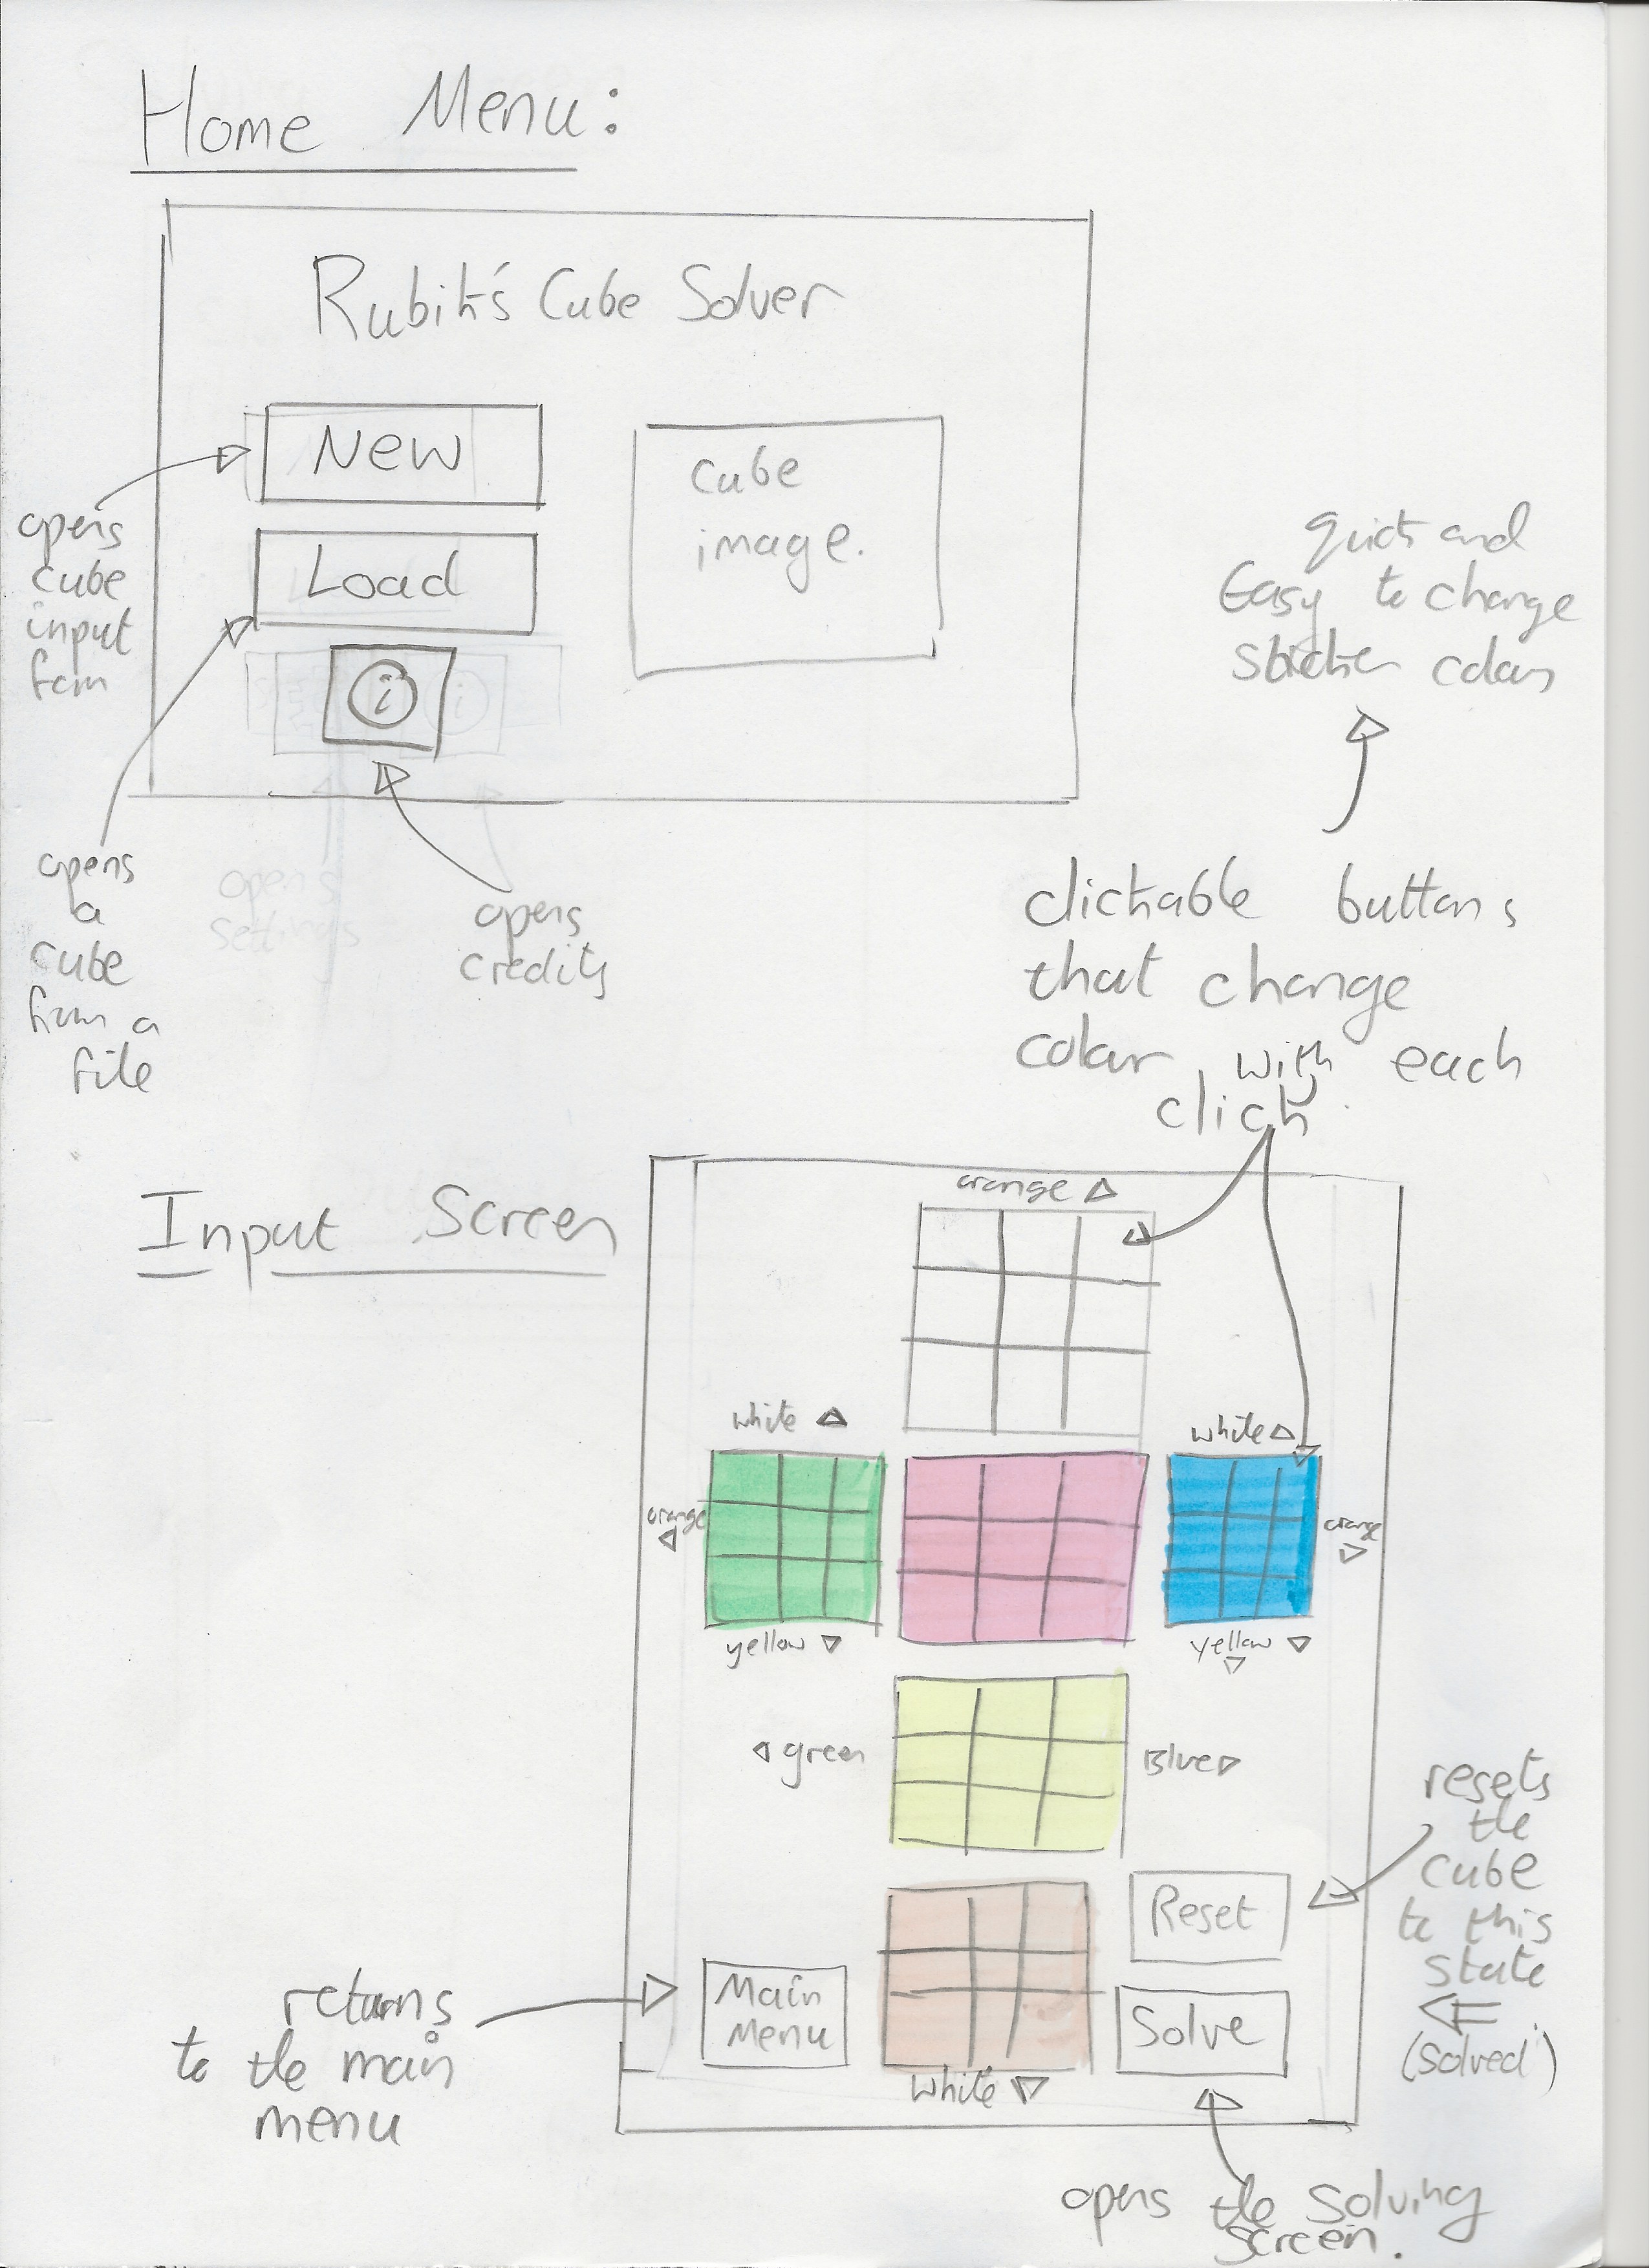 Home Menu:
Rubik's Cube Solver
New
Load
i
cube
image.
opens
cube
input
form
opens
a
cube
from a
file
opens
settings
opens
credits
quick and
Easy to change
sticker colours
clickable buttons
that change
colour with each
click
Input Screen
orange
white
white
orange
orange
yellow
yellow
green
Blue
Reset
Main
Menu
Solve
white
resets
the
cube
to this
state
(solved)
returns
to the main
menu
opens the solving
screen.